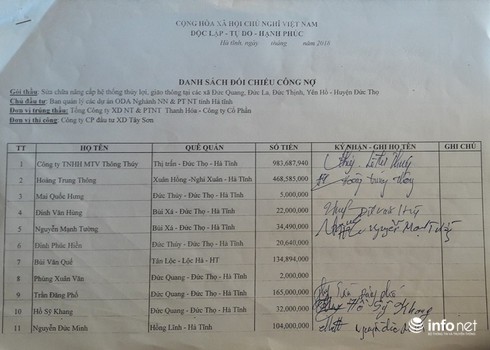 CỘNG HÒA XÃ HỘI CHỦ NGHĨ VIỆT NAM
DỘC LẬP - TỰ DO - HẠNH PHÚC
Hà tĩnh, ngày tháng năm 2018
DANH SÁCH ĐỐI CHIẾU CÔNG NỢ
Gói thầu: Sửa chữa nâng cấp hệ thống thủy lợi, giao thông tại các xã Đức Quang, Đức La, Đức Thịnh, Yên Hồ - Huyện Đức Thọ
Chủ đầu tư: Ban quản lý các dự án ODA Nghành NN & PT NT tỉnh Hà tĩnh
Đơn vị trúng thầu: Tổng Công ty XD NT & PTNT Thanh Hóa - Công ty Cổ Phần
Đơn vị thi công: Công ty CP đầu tư XD Tây Sơn
TT HỌ TÊN QUÊ QUÁN SỐ TIỀN KÝ NHẬN - GHI HỌ TÊN GHI CHÚ
1 Công ty TNHH MTV Thông Thúy Thị trấn - Đức Thọ - Hà Tĩnh 983,687,940
2 Hoàng Trung Thông Xuân Hồng -Nghi Xuân - Hà Tĩnh 468,585,000
3 Mai Quốc Hưng Đức Thủy - Đức Thọ - Hà Tĩnh 5,000,000
4 Đinh Văn Hùng Bùi Xá - Đức Thọ - Hà Tĩnh 22,000,000
5 Nguyễn Mạnh Tường Bùi Xá - Đức Thọ - Hà Tĩnh 34,490,000 Nguyễn Mạnh Tường
6 Đinh Phúc Hiền Đức Thủy - Đức Thọ - Hà Tĩnh 20,640,000
7 Bùi Văn Quế Tân Lộc - Lộc Hà - HT 134,894,000
8 Phùng Xuân Vân Đức Quang - Đức Thọ - Hà Tĩnh 2,000,000
9 Trần Đăng Phố Đức Quang - Đức Thọ - Hà Tĩnh 165,000,000
10 Hồ Sỹ Khang Đức Quang - Đức Thọ - Hà Tĩnh 32,000,000 Hồ Sỹ Khang
11 Nguyễn Đức Minh Hồng Lĩnh - Hà Tĩnh 104,000,000
infonet